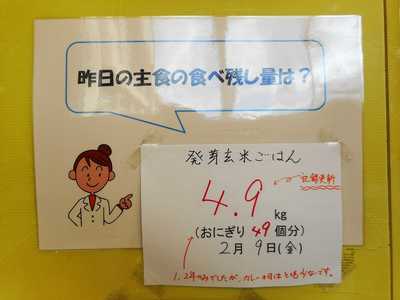 昨日の主食の食べ残し量は？
発芽玄米ごはん
記録更新
4.9 kg
(おにぎり 49 個分)
2月 9日(金)
1、2年のみでしたが、カレーの日はとても少ないです。